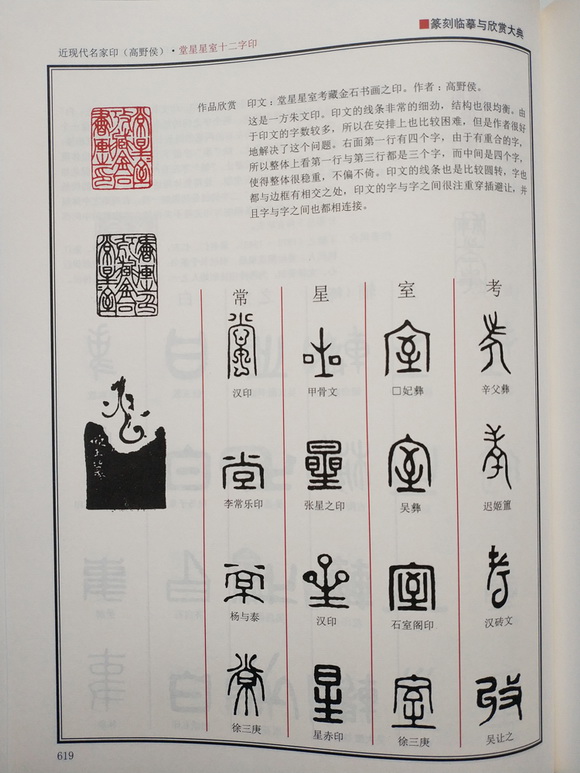 ■篆刻临摹与欣赏大典
近现代名家印（高野侯）·堂星星室十二字印
作品欣赏　印文：堂星星室考藏金石书画之印。作者：高野侯。
这是一方朱文印。印文的线条非常的细劲，结构也很均衡，由
于印文的字数较多，所以在安排上也比较困难，但是作者很好
地解决了这个问题。右面第一行有四个字，由于有重合的字，
所以整体上看第一行与第三行都是三个字，而中间是四个字，
使得整体很稳重，不偏不倚。印文的线条也是比较圆转，字也
都与边框有相交之处，印文的字与字之间很注重穿插避让，并
且字与字之间也都相连接。
常　星　室　考
汉印　甲骨文　□妃彝　辛父彝
李常乐印　张星之印　吴彝　迟姬簠
杨与泰　汉印　石室阁印　汉砖文
徐三庚　星赤印　徐三庚　吴让之
619